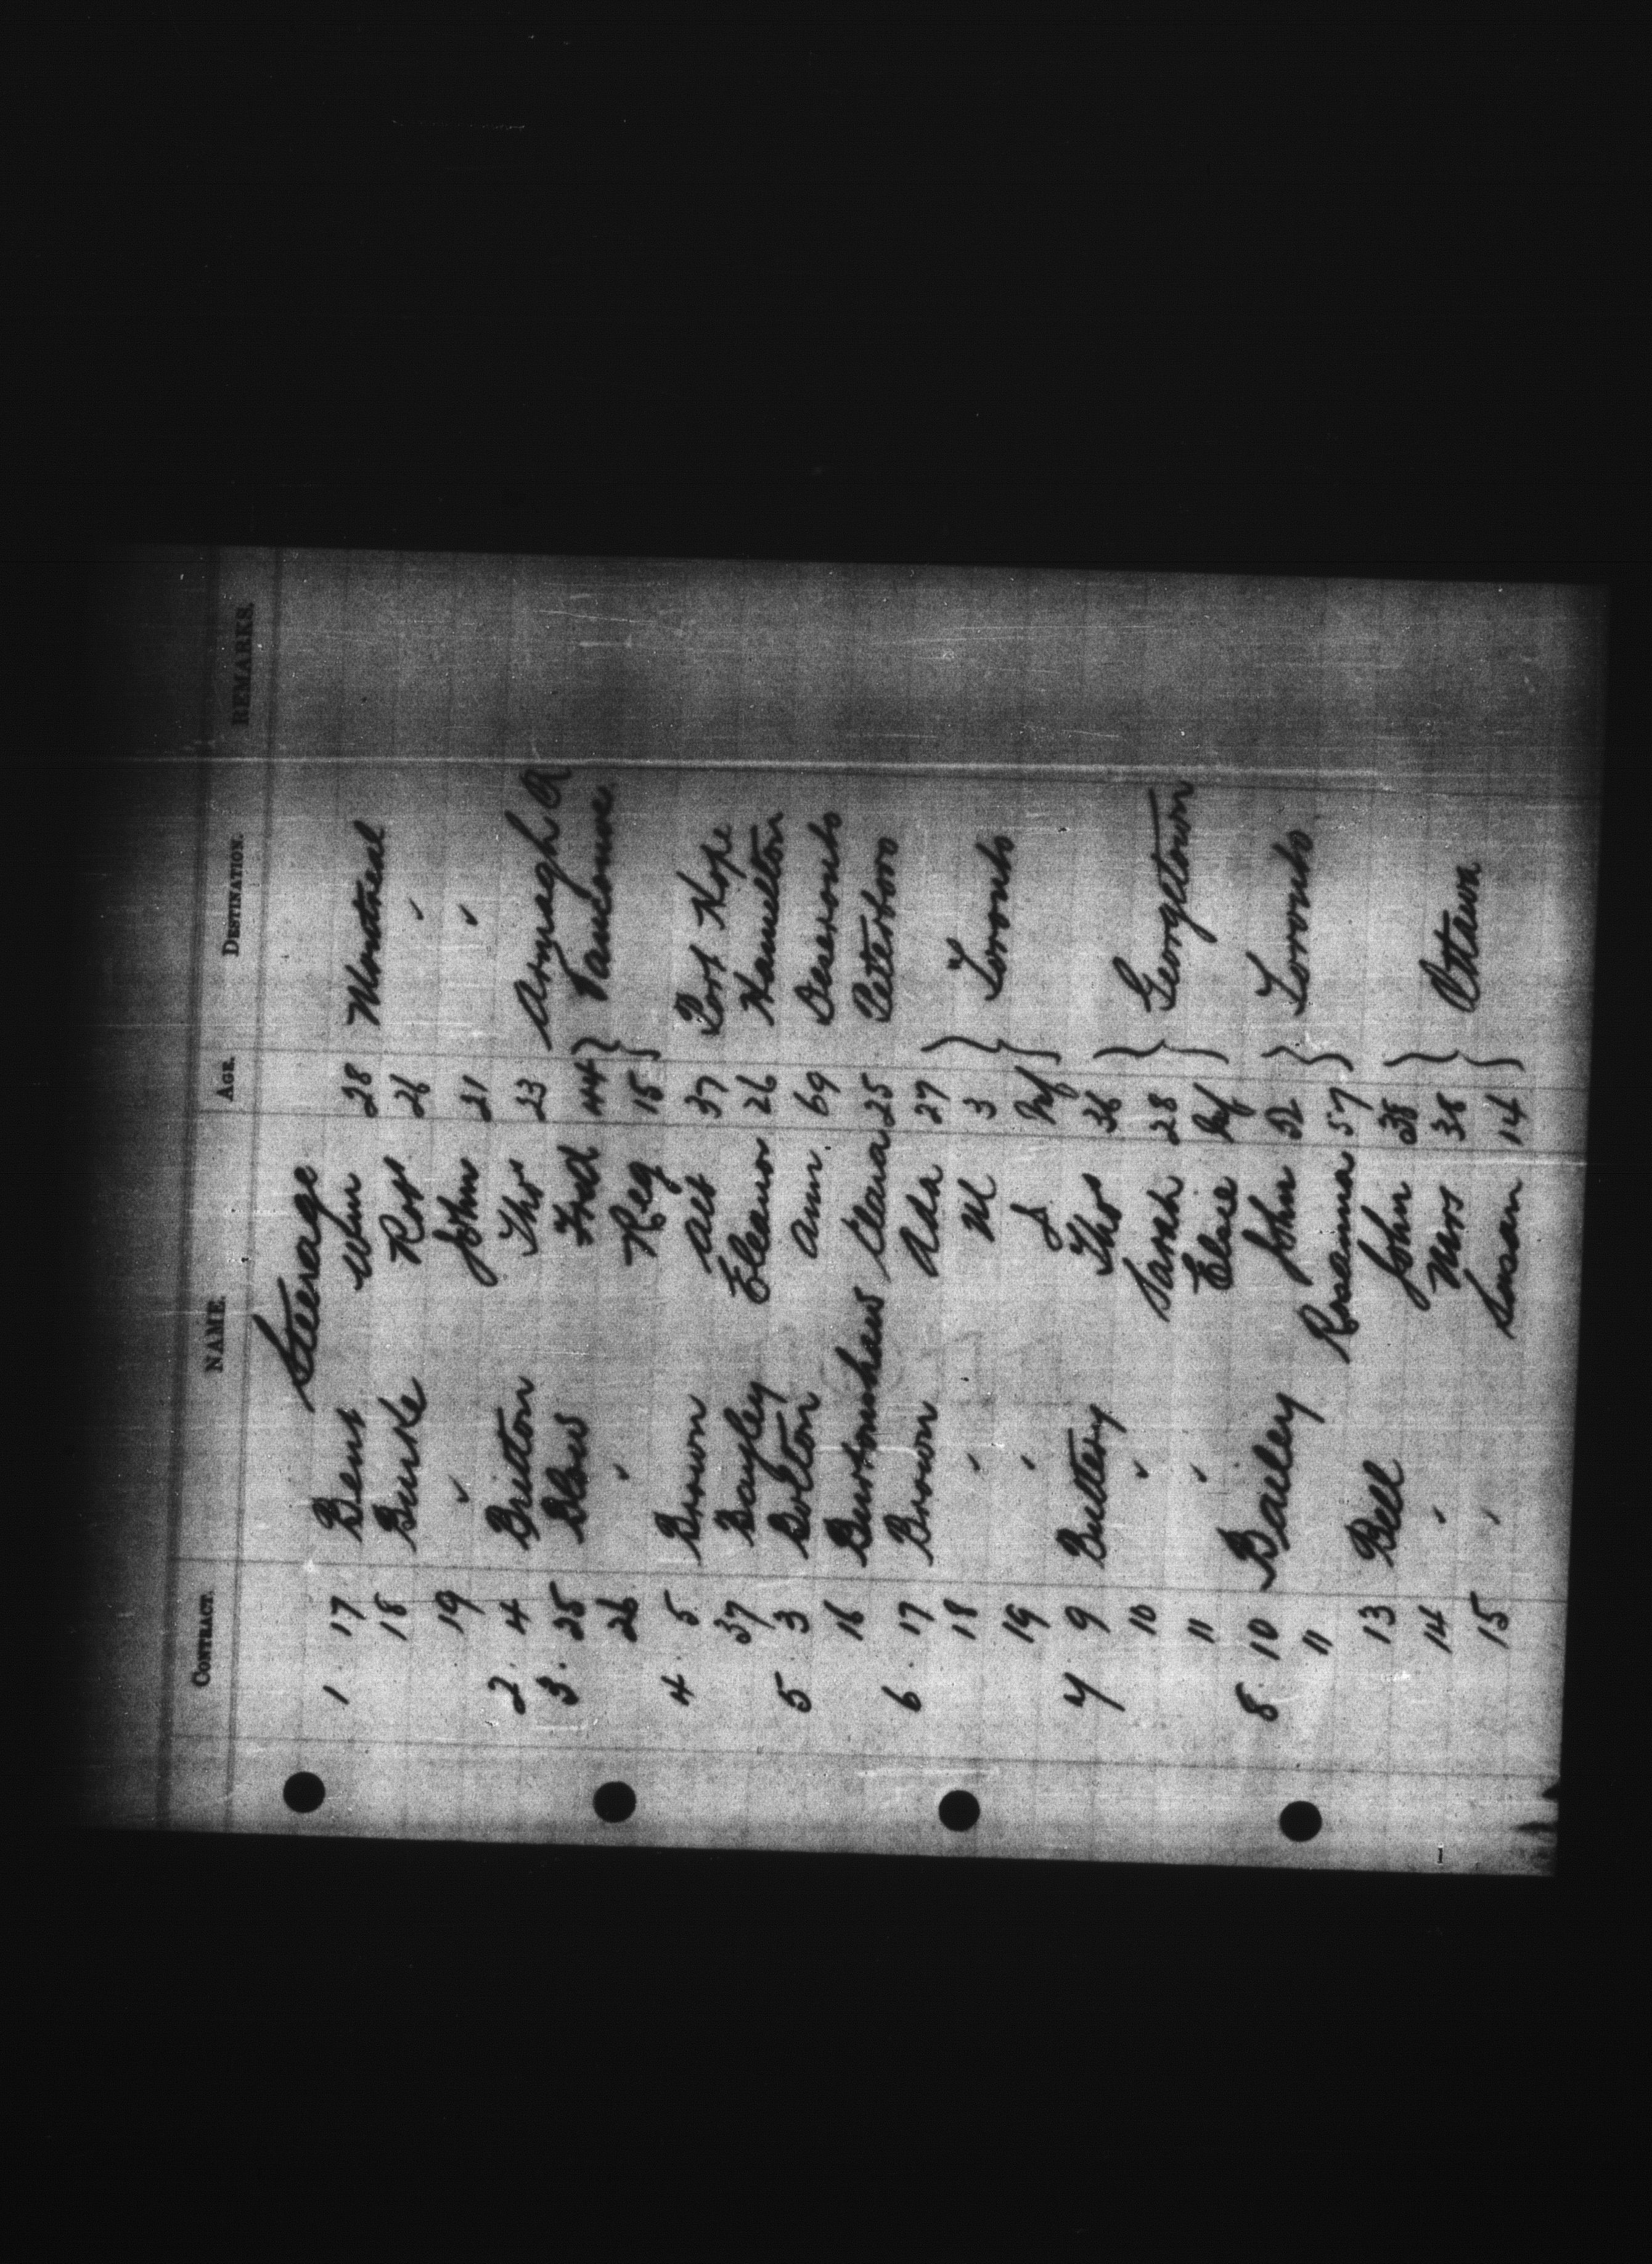 CONTRACT. NAME. AGE. DESTINATION. REMARKS.
Steerage
1. 17 Bent Wm 28 Montreal
18 Burke Ross 26 "
19 " John 21 "
2. 4 Britton Thos 23 Armagh Q
3. 25 Blow Fred 44
26 " Reg 15
4 5 Brown Alb 37 Port Hope
37 Bayley Eleanor 26 Hamilton
5 3 Bolton Ann 69 Deseronto
16 Clara 25 Peterboro
6. 17 Brown Ada 27
18 " M 3 Toronto
19 " J Inf
7 9 Buttery Thos 36
10 " Sarah 28 Georgetown
11 " Elsie Inf
8. 10 Bailey John 52 Toronto
11 Rosanna 57
13 Bell John 38
14 " Mrs 38 Ottawa
15 " Susan 14